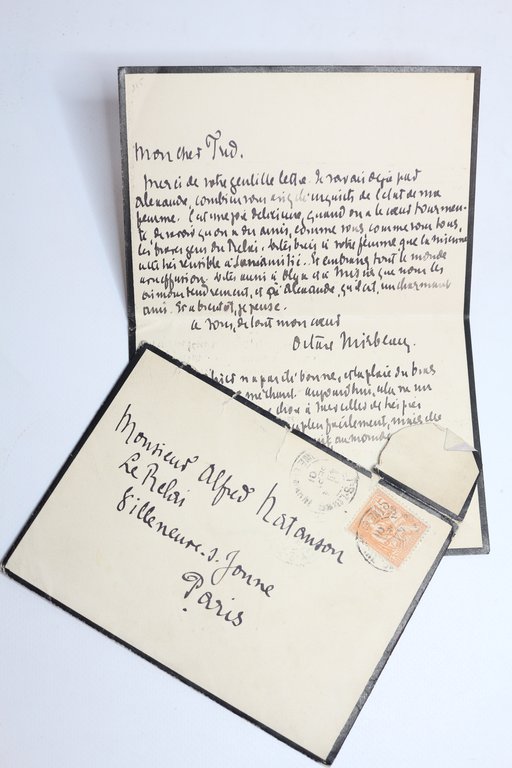 Mon cher Fred.
Merci de votre gentille lettre. Je savais déjà par
Alexandre, combien vous inquiets de l'état de ma
femme. C'est une joie délicieuse, quand on a le cœur tourmen-
té, de savoir qu'on a des amis, comme vous, comme vous tous,
les braves gens du Relais. Dites bien à votre femme que la mienne
a été très sensible à son amitié. Et embrassez tout le monde
avec effusion. Dites aussi à Olga et à Misia que nous les
aimons tendrement, et qu'Alexandre, qu'il est, un charmant
ami. Et à bientôt, je pense.
à vous, de tout mon cœur
Octave Mirbeau
n'a pas été bonne, et la plaie du bras
méchant aujourd'hui, elle va un
à merveille de très près
plus facilement, mais elle
au monde
Monsieur Alfred Natanson
Le Relai
Villeneuve-s. Yonne
Paris